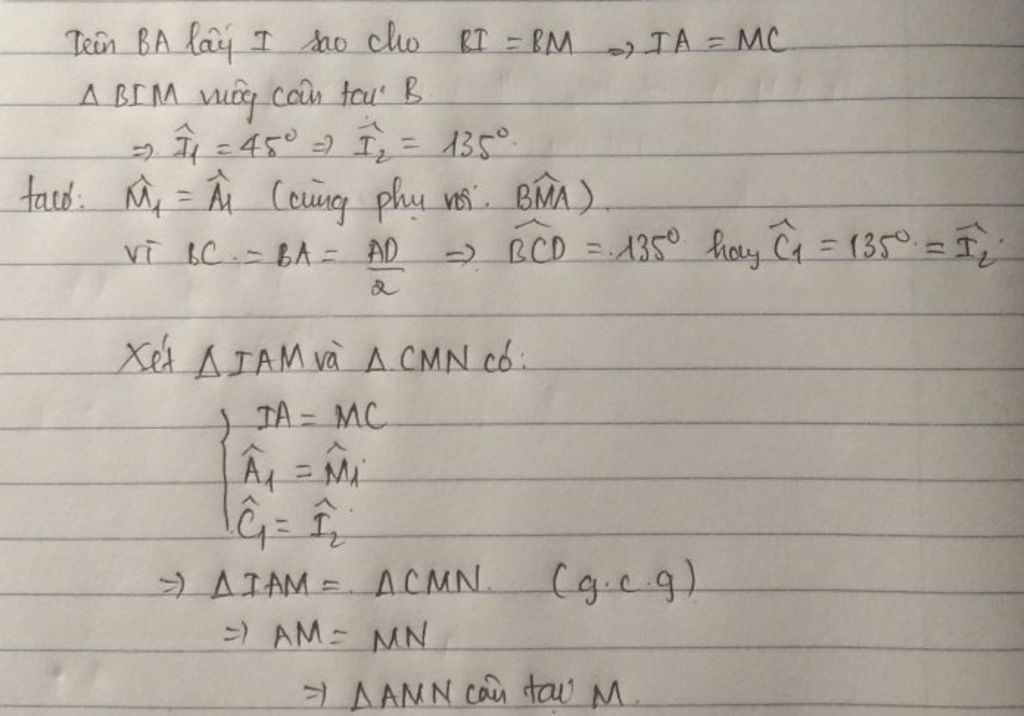 Trên BA lấy I sao cho BI = BM => IA = MC
Δ BIM vuông cân tại B
=> Î₁ = 45° => Î₂ = 135°.
ta có: M̂₁ = Â₁ (cùng phụ với BM̂A).
Vì BC = BA = AD/2 => BĈD = 135° hay Ĉ₁ = 135° = Î₂
Xét Δ IAM và Δ CMN có:
{ IA = MC
Â₁ = M̂₁
Ĉ₁ = Î₂
=> ΔIAM = ΔCMN. (g.c.g)
=> AM = MN
=> ΔAMN cân tại M.